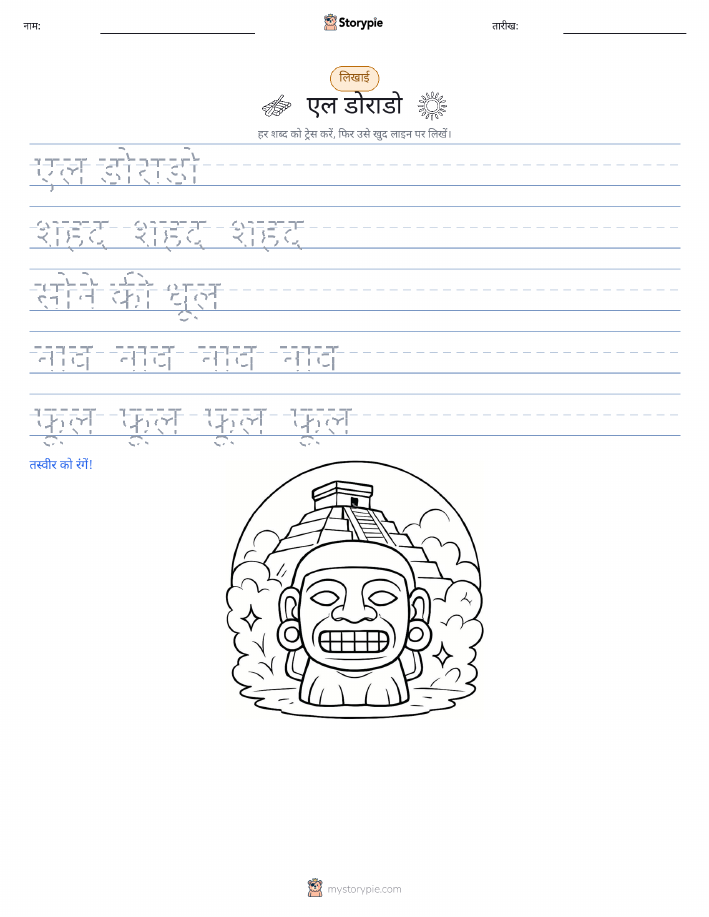 नाम: Storypie तारीख:
लिखाई
एल डोराडो
हर शब्द को ट्रेस करें, फिर उसे खुद लाइन पर लिखें।
एल डोराडो
शहद शहद शहद
सोने की धूल
नाव नाव नाव नाव
फूल फूल फूल फूल
तस्वीर को रंगें!
mystorypie.com